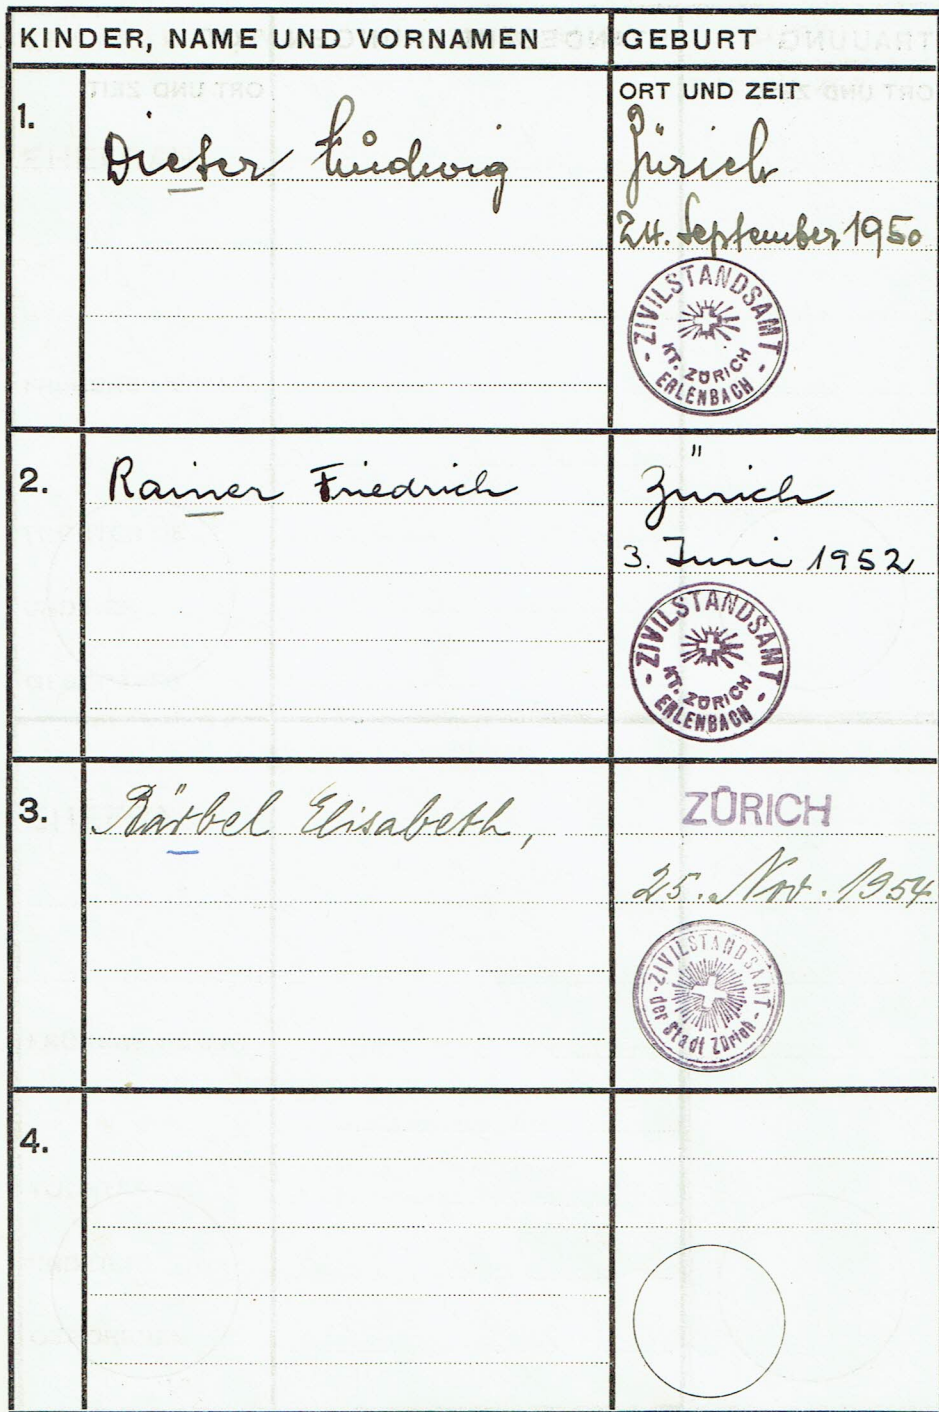 KINDER, NAME UND VORNAMEN
GEBURT
ORT UND ZEIT
1.
Dieter Ludwig
Zürich
24. September 1950
ZIVILSTANDSAMT
KT. ZÜRICH
ERLENBACH
2.
Rainer Friedrich
Zürich
3. Juni 1952
ZIVILSTANDSAMT
KT. ZÜRICH
ERLENBACH
3.
Bärbel Elisabeth,
ZÜRICH
25. Nov. 1954
ZIVILSTANDSAMT
der Stadt Zürich
4.